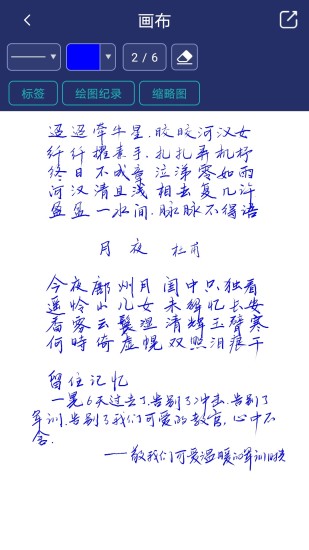 画布
2 / 6
标签 绘图纪录 缩略图
迢迢牵牛星，皎皎河汉女
纤纤擢素手，扎扎弄机杼
终日不成章 泣涕零如雨
河汉清且浅 相去复几许
盈盈一水间，脉脉不得语
月夜 杜甫
今夜鄜州月 闺中只独看
遥怜小儿女 未解忆长安
香雾云鬟湿 清辉玉臂寒
何时倚虚幌 双照泪痕干
留住记忆
一晃6天过去了，告别了冲击，告别了
军训，告别了我们可爱的教官，心中不
舍，
——敬我们可爱温暖的军训时光